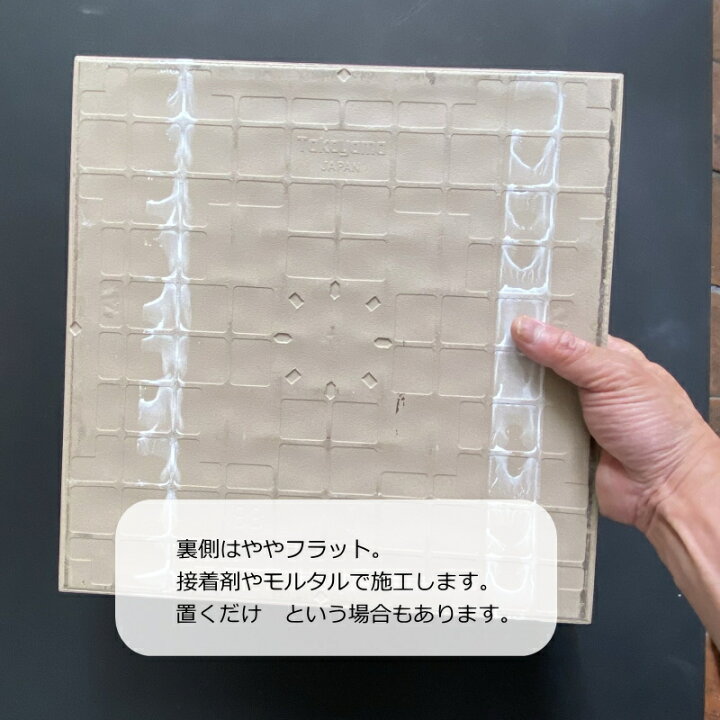 Takayama
JAPAN
裏側はややフラット。
接着剤やモルタルで施工します。
置くだけ　という場合もあります。